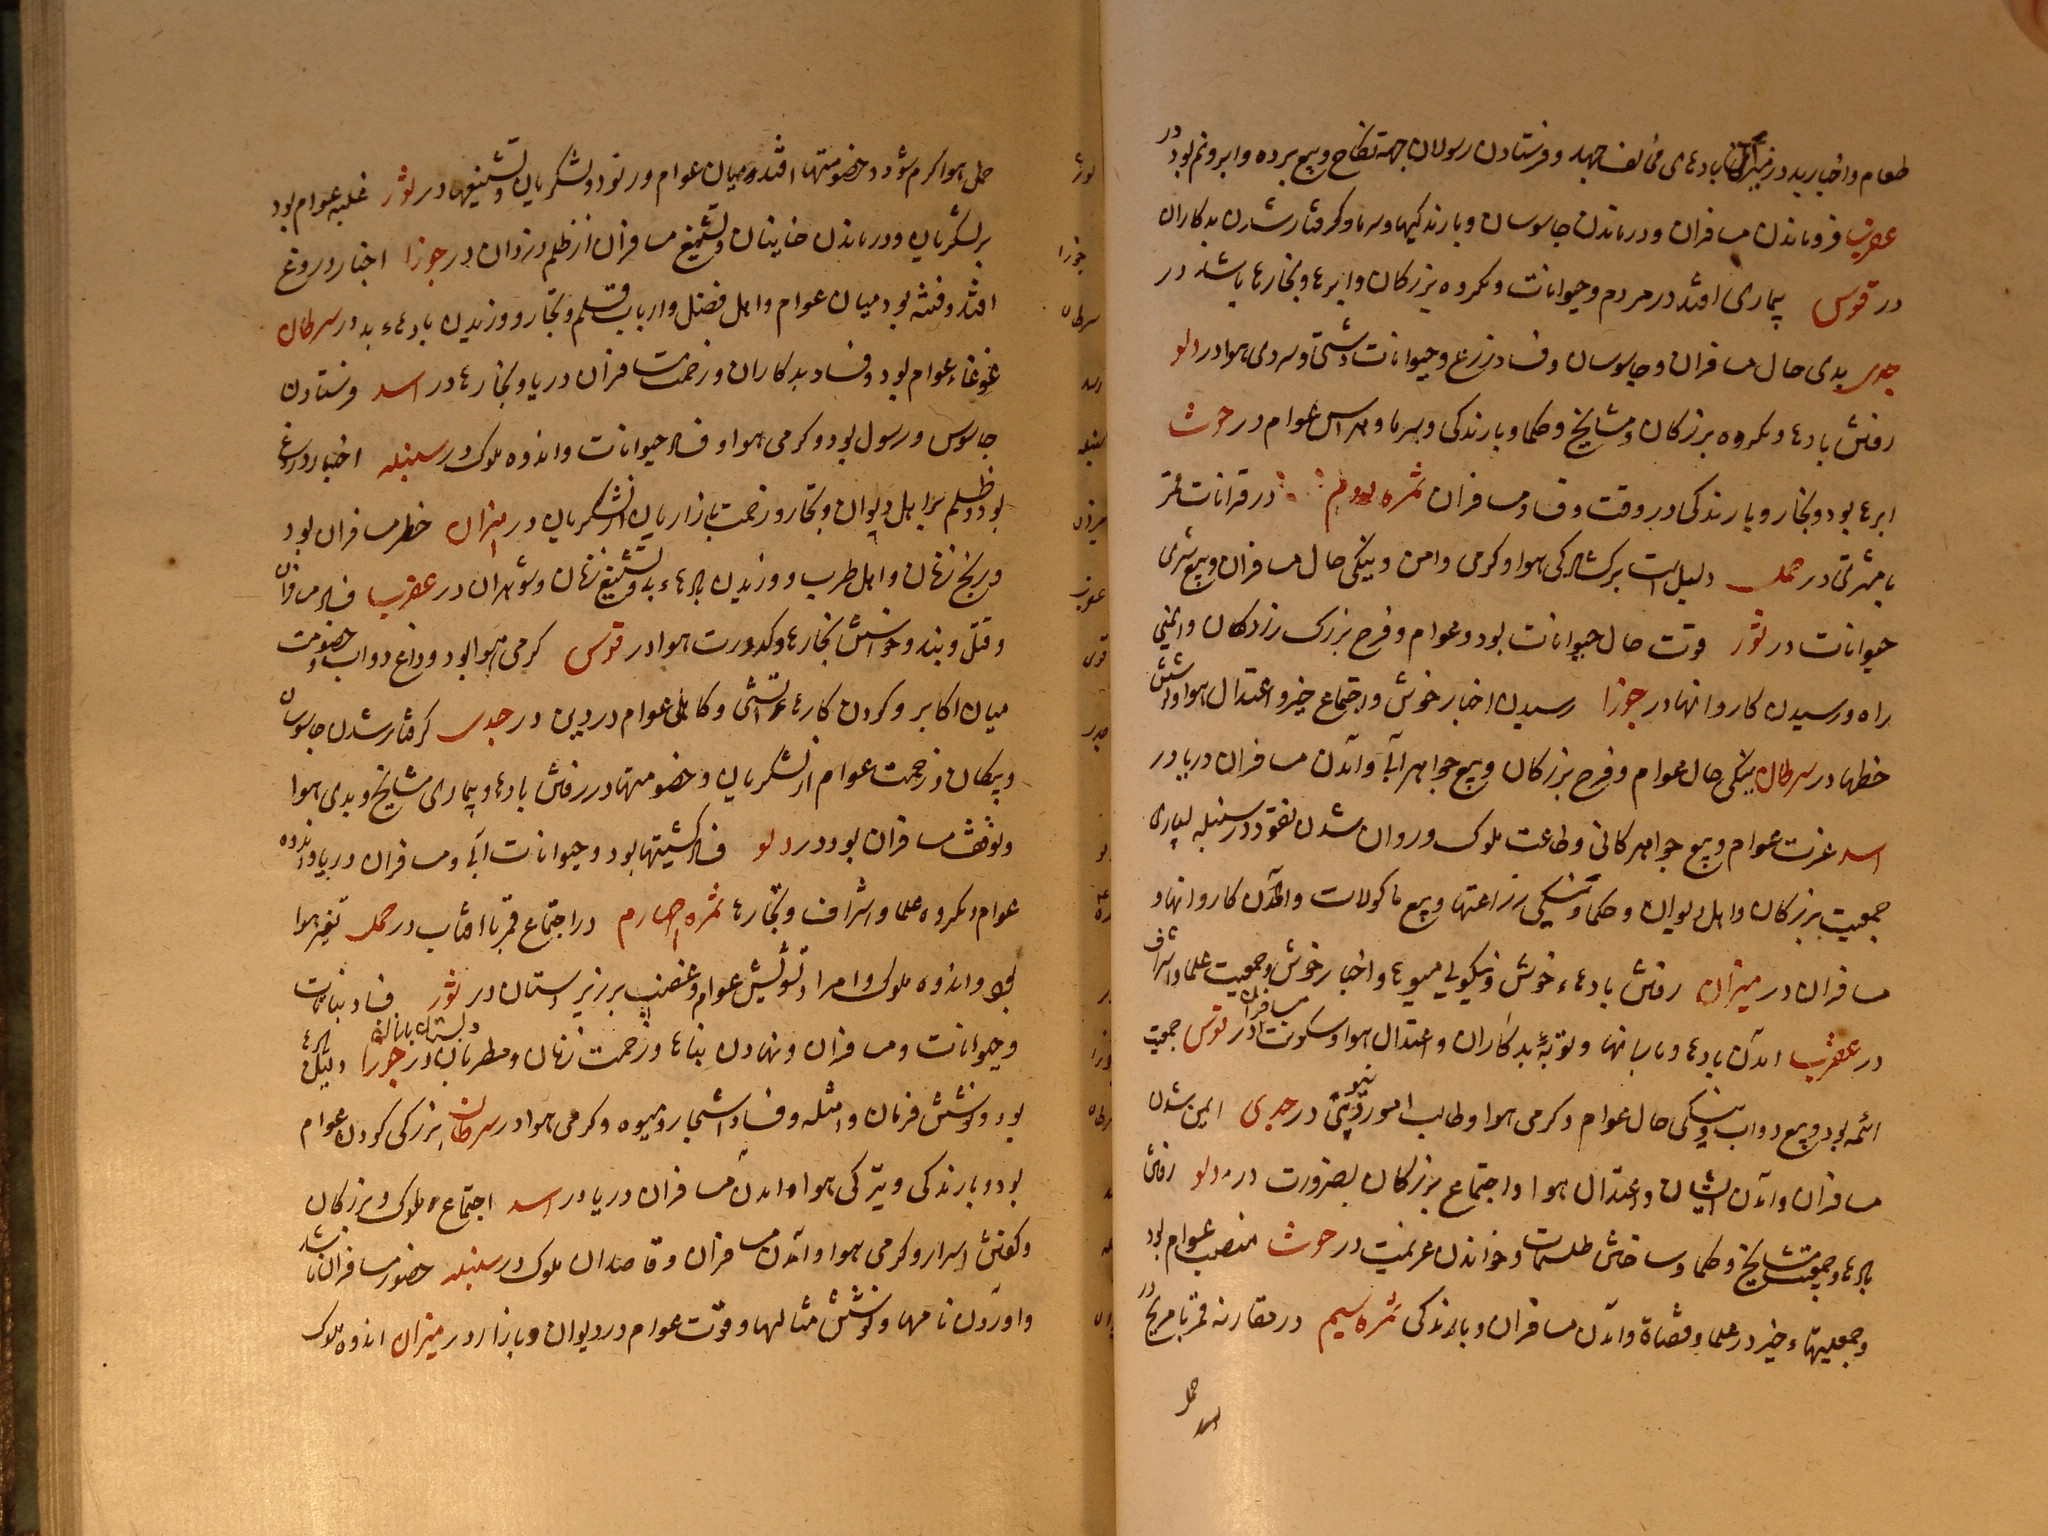 طعام و اخبار بد در میزان بادهای مخالف جهد و فرستادن رسولان جهة نکاح و بیع برده و ابر و نم بود در
عقرب فروماندن مسافران و درماندن جاسوسان و بارندکیها و سرما و کرفتار شدن بدکاران
در قوس بیماری افتد در مردم و حیوانات و مکروه بزرکان و ابرها و بخارها باشد در
جدی بدی حال مسافران و جاسوسان و فساد زرع و حیوانات دشتی و سردی هوا در دلو
رفتن بادها و مکروه بزرکان و مشایخ و حکما و بارندکی و سرما و هراس عوام در حوت
ابرها بود و بخار و بارندکی در وقت و فساد مسافران ثمره دوم در قرانات قمر
با مشتری در حمل دلیل است بر کشادکی هوا و کرمی و امن و نیکی حال مسافران و بیع شری
حیوانات در ثور قوت حال حیوانات بود و عوام و فرح بزرک زادکان و ایمنی
راه و رسیدن کاروانها در جوزا رسیدن اخبار خوش و اجتماع خیر و اعتدال هوا و
خطها در سرطان نیکی حال عوام و فرح بزرکان و بیع جواهر آبی و آمدن مسافران دریا در
اسد عزت عوام و بیع جواهر کانی و طاعت ملوک و روان شدن نقود در سنبله بسیاری
جمعیت بزرکان و اهل دیوان و حکما و نیکی زراعتها و بیع ماکولات و آمدن کاروانها و
مسافران در میزان رفتن بادهاء خوش و نیکویی میوها و اخبار خوش و جمعیت علما و اشراف
در عقرب آمدن بادها و بارانها و توبهٔ بدکاران و اعتدال هوا و سکونت مسافران در قوس جمعیت
ائمه بود و بیع دواب و نیکی حال عوام و کرمی هوا و طالب امور دنیوی در جدی ایمن شدن
مسافران و آمدن ایشان و اعتدال هوا و اجتماع بزرکان بضرورت در دلو رفتن
بادها و جمعیت مشایخ و حکما و ساختن طلسمات و خواندن عزیمت در حوت منصب عوام بود
و جمعیتهاء خیر در علما و قضاة و آمدن مسافران و بارندکی ثمره سیم در مقارنه قمر با مریخ در
حمل
حمل هوا کرم شود و خصومتها افتد میان عوام و رنود و لشکریان و تشنیعها در ثور غلبه عوام بود
بر لشکریان و درماندن خاینان و تشنیع مسافران از ظلم دزدان در جوزا اخبار دروغ
افتد و فتنه بود میان عوام و اهل فضل و ارباب قلم و تجار و وزیدن بادهاء بد در سرطان
غوغاء عوام بود و فساد بدکاران و زحمت مسافران دریا و بخارها در اسد فرستادن
جاسوس و رسول بود و کرمی هوا و فساد حیوانات و اندوه ملوک در سنبله اخبار دروغ
بود و ظلم بر اهل دیوان و تجار و زحمت بازاریان از لشکریان در میزان خطر مسافران بود
و رنج زنان و اهل طرب و وزیدن بادهاء بد و تشنیع زنان و شوهران در عقرب فساد مسافران
و قتل و بند و خواستن بخارها و کدورت هوا در قوس کرمی هوا بود و داغ دواب و خصومت
میان اکابر و کردن کارهاء آتشی و کاهلی عوام در دین در جدی کرفتار شدن جاسوسان
و پیکان و زحمت عوام از لشکریان و خصومتها در رفتن بادها و بیماری مشایخ و بدی هوا
و توقف مسافران بود در دلو فساد کشتیها بود و حیوانات آبی و مسافران دریا و اندوه
عوام و مکروه علما و اشراف و تجارها ثمره چهارم در اجتماع قمر با آفتاب در حمل تغیر هوا
بود و اندوه ملوک و امرا و تشویش عوام و غضب بر زیردستان در ثور فساد نباتات
و حیوانات و مسافران و نهادن بناها و زحمت زنان و مطربان در جوزا دلیل
بود و نوشتن فرمان و امثله و فساد اشجار و میوه و کرمی هوا در سرطان بزرکی کودن عوام
بود و بارندکی و تیرکی هوا و آمدن مسافران دریا در اسد اجتماع ملوک و بزرکان
و کفتن اسرار و کرمی هوا و آمدن مسافران و قاصدان ملوک در سنبله حضور مسافران باشد
و آوردن نامها و نوشتن مثالها و قوت عوام در دیوان و بازار در میزان اندوه ملوک